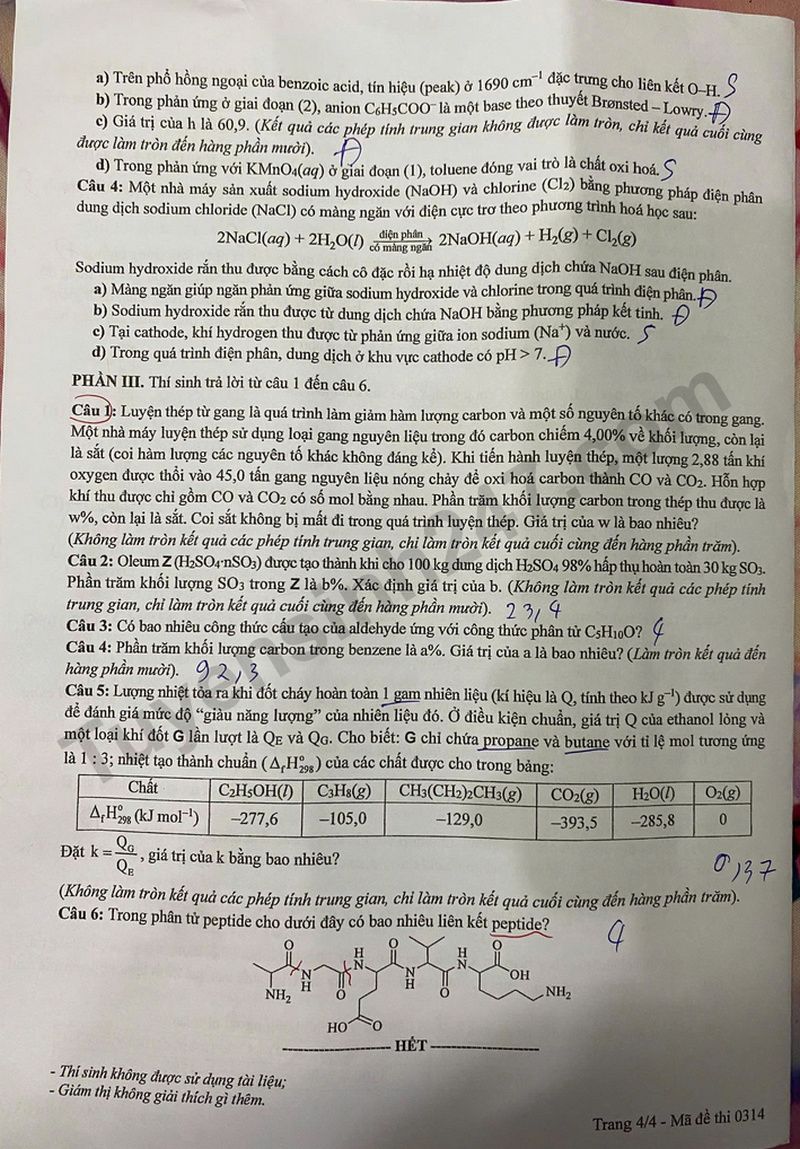 a) Trên phổ hồng ngoại của benzoic acid, tín hiệu (peak) ở 1690 cm⁻¹ đặc trưng cho liên kết O–H. S
b) Trong phản ứng ở giai đoạn (2), anion C₆H₅COO⁻ là một base theo thuyết Brønsted – Lowry. Đ
c) Giá trị của h là 60,9. (Kết quả các phép tính trung gian không được làm tròn, chỉ kết quả cuối cùng
được làm tròn đến hàng phần mười). Đ
d) Trong phản ứng với KMnO₄(aq) ở giai đoạn (1), toluene đóng vai trò là chất oxi hoá. S
Câu 4: Một nhà máy sản xuất sodium hydroxide (NaOH) và chlorine (Cl₂) bằng phương pháp điện phân
dung dịch sodium chloride (NaCl) có màng ngăn với điện cực trơ theo phương trình hoá học sau:
2NaCl(aq) + 2H₂O(l) điện phân có màng ngăn → 2NaOH(aq) + H₂(g) + Cl₂(g)
Sodium hydroxide rắn thu được bằng cách cô đặc rồi hạ nhiệt độ dung dịch chứa NaOH sau điện phân.
a) Màng ngăn giúp ngăn phản ứng giữa sodium hydroxide và chlorine trong quá trình điện phân. Đ
b) Sodium hydroxide rắn thu được từ dung dịch chứa NaOH bằng phương pháp kết tinh. Đ
c) Tại cathode, khí hydrogen thu được từ phản ứng giữa ion sodium (Na⁺) và nước. S
d) Trong quá trình điện phân, dung dịch ở khu vực cathode có pH > 7. Đ
PHẦN III. Thí sinh trả lời từ câu 1 đến câu 6.
Câu 1: Luyện thép từ gang là quá trình làm giảm hàm lượng carbon và một số nguyên tố khác có trong gang.
Một nhà máy luyện thép sử dụng loại gang nguyên liệu trong đó carbon chiếm 4,00% về khối lượng, còn lại
là sắt (coi hàm lượng các nguyên tố khác không đáng kể). Khi tiến hành luyện thép, một lượng 2,88 tấn khí
oxygen được thổi vào 45,0 tấn gang nguyên liệu nóng chảy để oxi hoá carbon thành CO và CO₂. Hỗn hợp
khí thu được chỉ gồm CO và CO₂ có số mol bằng nhau. Phần trăm khối lượng carbon trong thép thu được là
w%, còn lại là sắt. Coi sắt không bị mất đi trong quá trình luyện thép. Giá trị của w là bao nhiêu?
(Không làm tròn kết quả các phép tính trung gian, chỉ làm tròn kết quả cuối cùng đến hàng phần trăm).
Câu 2: Oleum Z (H₂SO₄·nSO₃) được tạo thành khi cho 100 kg dung dịch H₂SO₄ 98% hấp thụ hoàn toàn 30 kg SO₃.
Phần trăm khối lượng SO₃ trong Z là b%. Xác định giá trị của b. (Không làm tròn kết quả các phép tính
trung gian, chỉ làm tròn kết quả cuối cùng đến hàng phần mười). 23,4
Câu 3: Có bao nhiêu công thức cấu tạo của aldehyde ứng với công thức phân tử C₅H₁₀O? 4
Câu 4: Phần trăm khối lượng carbon trong benzene là a%. Giá trị của a là bao nhiêu? (Làm tròn kết quả đến
hàng phần mười). 92,3
Câu 5: Lượng nhiệt tỏa ra khi đốt cháy hoàn toàn 1 gam nhiên liệu (kí hiệu là Q, tính theo kJ g⁻¹) được sử dụng
để đánh giá mức độ “giàu năng lượng” của nhiên liệu đó. Ở điều kiện chuẩn, giá trị Q của ethanol lỏng và
một loại khí đốt G lần lượt là Q_E và Q_G. Cho biết: G chỉ chứa propane và butane với tỉ lệ mol tương ứng
là 1 : 3; nhiệt tạo thành chuẩn (Δ_fH°₂₉₈) của các chất được cho trong bảng:
Chất C₂H₅OH(l) C₃H₈(g) CH₃(CH₂)₂CH₃(g) CO₂(g) H₂O(l) O₂(g)
Δ_fH°₂₉₈ (kJ mol⁻¹) –277,6 –105,0 –129,0 –393,5 –285,8 0
Đặt k = Q_G/Q_E, giá trị của k bằng bao nhiêu? 0,37
(Không làm tròn kết quả các phép tính trung gian, chỉ làm tròn kết quả cuối cùng đến hàng phần trăm).
Câu 6: Trong phân tử peptide cho dưới đây có bao nhiêu liên kết peptide? 4
O H O H O
N N OH
NH₂ N H O N H O NH₂
HO O
HẾT
- Thí sinh không được sử dụng tài liệu;
- Giám thị không giải thích gì thêm.
Trang 4/4 - Mã đề thi 0314